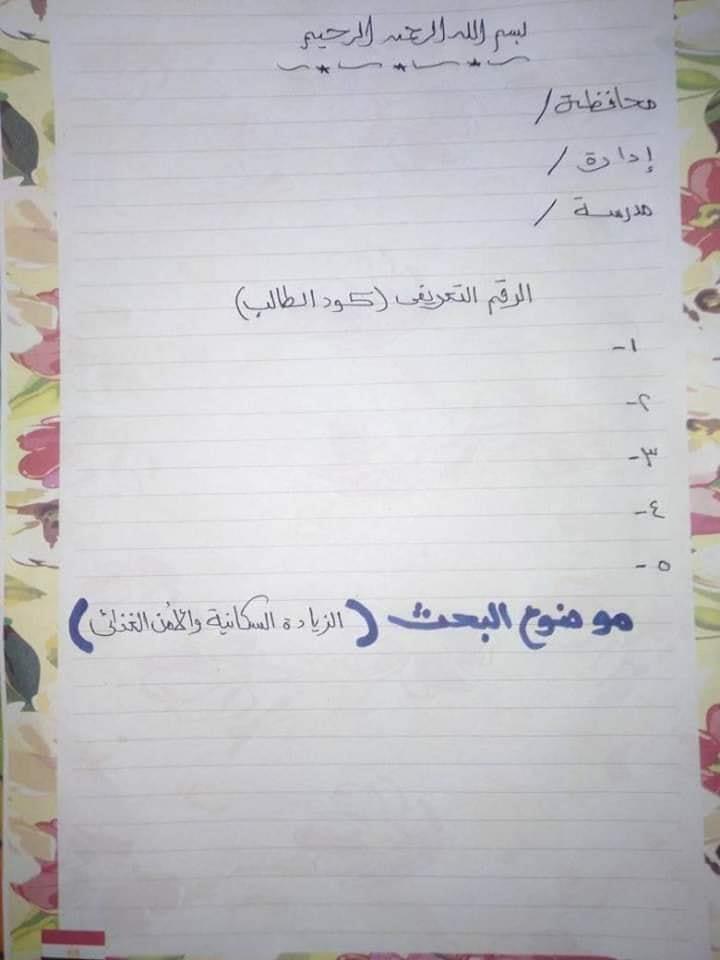 بسم الله الرحمن الرحيم
محافظة /
إدارة /
مدرسة /
الرقم التعريفى (كود الطالب)
١-
٢-
٣-
٤-
٥-
موضوع البحث (الزيادة السكانية والأمن الغذائى)